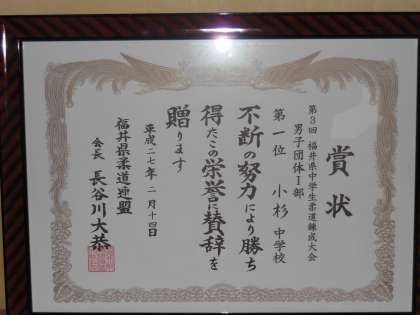 賞状
第3回 福井県中学生柔道錬成大会
男子団体Ⅰ部
第一位 小杉 中学校
不断の努力により勝ち
得たこの栄誉に賛辞を
贈ります
平成二七年 二月十四日
福井県柔道連盟
会長 長谷川大恭